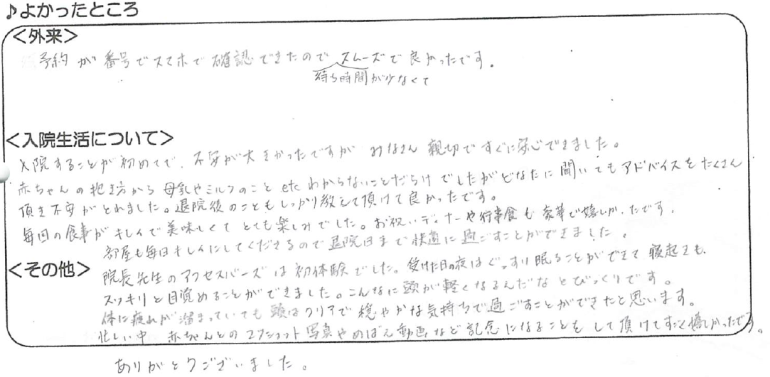 ♪よかったところ
<外来>
予約が番号でスマホで確認できたのでスムーズで良かったです。
待ち時間が少なくて
<入院生活について>
入院することが初めてで、不安が大きかったですがみなさん親切ですぐに安心できました。
赤ちゃんの抱き方から母乳やミルクのこと etc わからないことだらけでしたがどなたに聞いてもアドバイスをたくさん
頂き不安がとれました。退院後のこともしっかり教えて頂けて良かったです。
毎回の食事がキレイで美味しくてとても楽しみでした。お祝いディナーや行事食も豪華で嬉しかったです。
部屋も毎日キレイにしてくださるので退院日まで快適に過ごすことができました。
<その他>
院長先生のアクセスバーズは初体験でした。受けた日の夜はぐっすり眠ることができて寝起きも、
スッキリと目覚めることができました。こんなに頭が軽くなるんだなとびっくりです。
体に疲れが溜まっていても頭はクリアで穏やかな気持ちで過ごすことができたと思います。
忙しい中、赤ちゃんとの2ショット写真やめばえ動画など記念になることもして頂けてすごく嬉しかったです。
ありがとうございました。